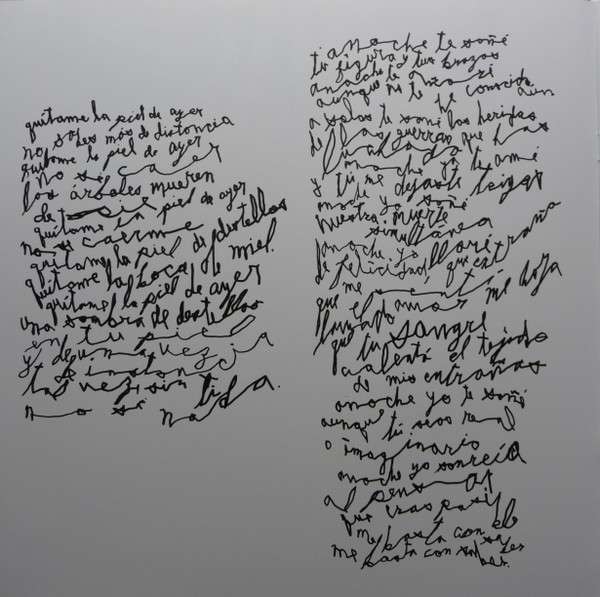 quítame la piel de ayer
no sabes más de distancia
quítame la piel de ayer
no sé caer
los árboles mueren
de pie
quítame la piel de ayer
no sé caerme
quítame la piel de destellos
quítame la boca de miel.
quítame la piel de ayer
una sonora de destellos
en tu piel
y de una vez
distancia
tal vez, sin ti
no sé nada.
anoche te soñé
tu figura y tus brazos
anoche te
aunque no te he conocido aun
a solas te soñé las heridas
de las guerras que has
luchado
y anoche yo te amé
y tú me dejaste
anoche yo soñé
nuestra muerte
simultánea
anoche yo lloré
de felicidad, que extraño
me sentí
que el amor me haya
llevado
que tu sangre
calentó el tejado
de mis entrañas
anoche yo te soñé
aunque tú seas real
o imaginario
anoche yo sonreía
al pensar
que eras
me basta con
me basta con